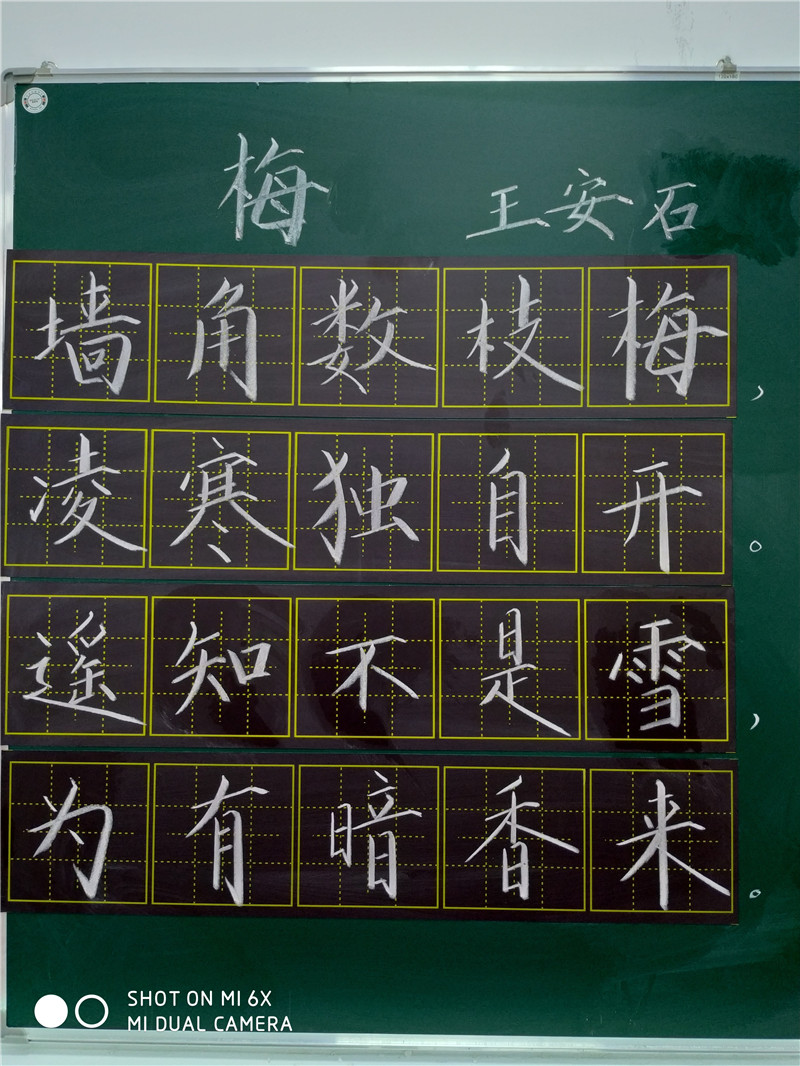 梅 王安石
墙角数枝梅，
凌寒独自开。
遥知不是雪，
为有暗香来。
SHOT ON MI 6X
MI DUAL CAMERA